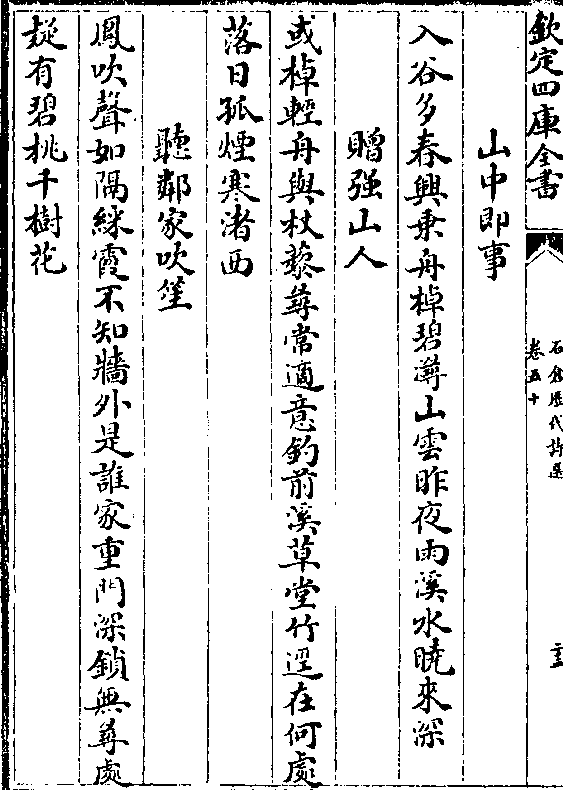 欽定四庫全書
石倉歷代詩選
卷五十
十五
山中即事
入谷多春興乗舟棹碧潯山雲昨夜雨溪水曉來深
贈强山人
或棹輕舟與杖藜尋常適意釣前溪草堂竹逕在何處
落日孤煙寒渚西
聽鄰家吹笙
鳳吹聲如隔綵霞不知牆外是誰家重門深鎖無尋處
疑有碧桃千樹花